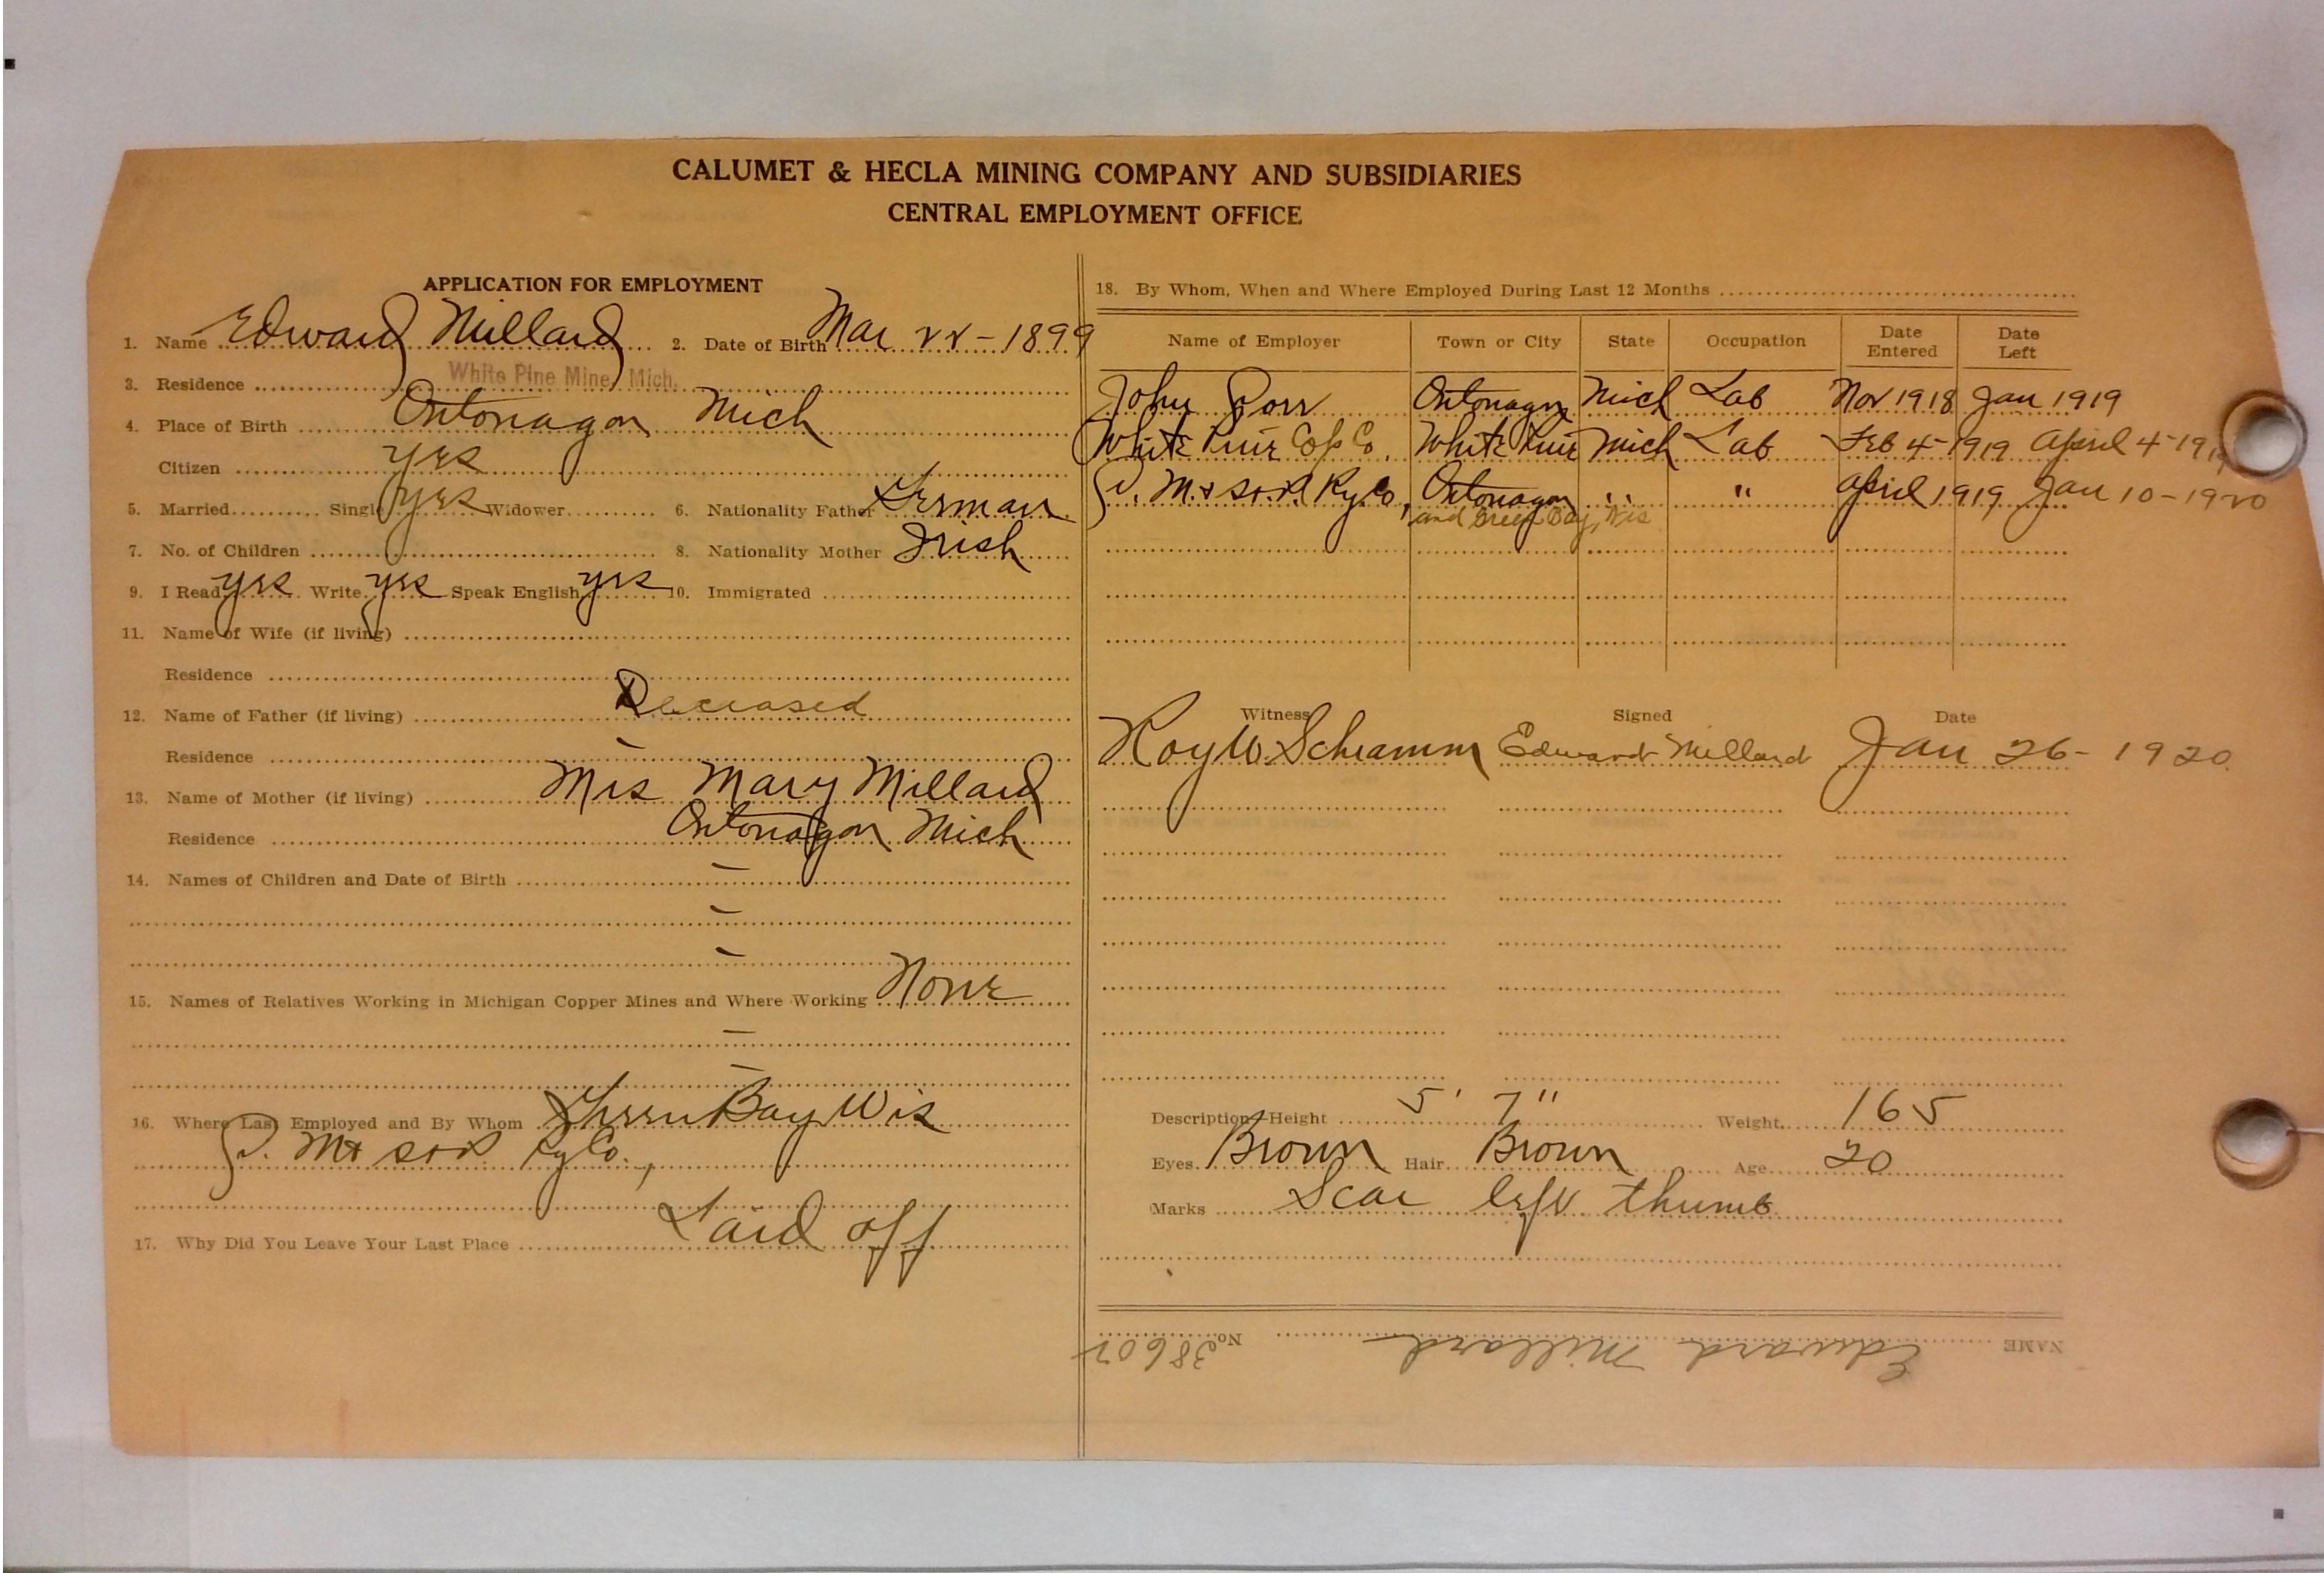 CALUMET & HECLA MINING COMPANY AND SUBSIDIARIES
CENTRAL EMPLOYMENT OFFICE
APPLICATION FOR EMPLOYMENT
1. Name Edward Millard 2. Date of Birth Mar 22-1899
3. Residence White Pine Mine, Mich.
4. Place of Birth Ontonagon Mich
Citizen yes
5. Married Single yes Widower 6. Nationality Father German
7. No. of Children 8. Nationality Mother Irish
9. I Read yes Write yes Speak English yes 10. Immigrated
11. Name of Wife (if living)
Residence
12. Name of Father (if living) Deceased
Residence —
13. Name of Mother (if living) Mrs Mary Millard
Residence Ontonagon Mich
14. Names of Children and Date of Birth —
—
—
15. Names of Relatives Working in Michigan Copper Mines and Where Working None
—
—
16. Where Last Employed and By Whom Green Bay Wis
Ry Co.,
17. Why Did You Leave Your Last Place Laid off
18. By Whom, When and Where Employed During Last 12 Months
Name of Employer Town or City State Occupation Date Entered Date Left
John Ontonagon Mich Lab Nov 1918 Jan 1919
White Pine Cop Co. White Pine Mich Lab Feb 4-1919 April 4-1919
Ry Co, Ontonagon " " April 1919 Jan 10-1920
and Green Bay, Wis
Witness Signed Date
Roy W. Schramm Edward Millard Jan 26-1920
Description—Height 5' 7" Weight 165
Eyes Brown Hair Brown Age 20
Marks Scar left thumb
NAME Edward Millard No. 38602